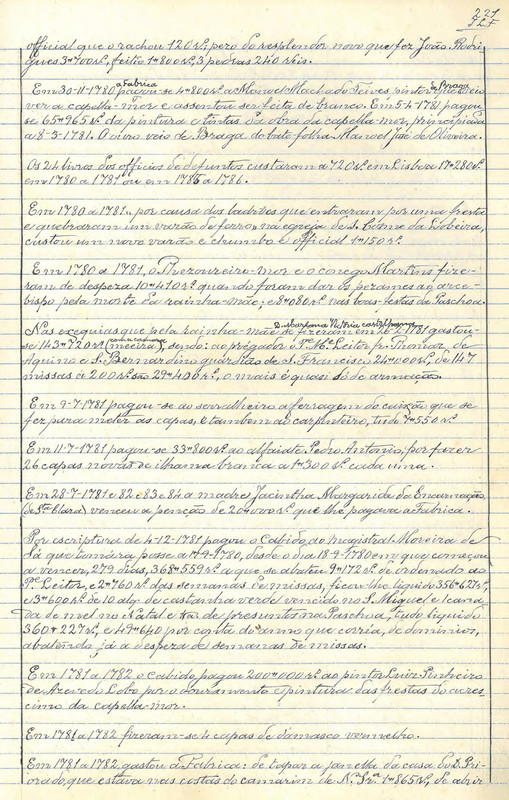 221
official que o rachou 120 rs.; pero do resplendor novo que fez João Rodri-
gues 3#700 rs., feitio 1#800 rs., 3 pedras 240 réis.
Em 30-11-1780 a Fabrica pagou-se 4#800 rs. a Manoel Machado Teives, pintor de Braga que veio
ver a capella-mór e assentou ser feita de branco. Em 5-4-1781 pagou-
se 65#965 rs. da pintura e tintas da obra da capella-mór, principiada
a 8-3-1781. O oiro veio de Braga do bate folha Manoel José de Oliveira.
Os 24 livros dos officios de defuntos custaram a 720 rs. em Lisboa 17#280 rs.
em 1780 a 1781, ou em 1785 a 1786.
Em 1780 a 1781, por causa dos ladrões que entraram por uma fresta
e quebraram um varão de ferro, na egreja de S. Cosme da Lobeira,
custou um novo varão e chumbo e official 1#150 rs.
Em 1780 a 1781, o Thezoureiro-mór e o conego Martins fize-
ram de despeza 10#410 rs. quando foram dar os pezames ao arce-
bispo pela morte da rainha-mãe; e 8#080 rs. nas boas-festas da Paschoa.
Nas exequias que pela rainha-mãe D. Mariana Victoria se fizeram em 26-2-1781 gastou-
se 143#720 rs. sendo: ao prégador o Pe. Me. Leitor fr. Thomaz de
Aquino e S. Bernardino guardião de S. Francisco 24#000 rs., de 147
missas a 200 rs. são 29#400 rs., o mais é quasi só de armação.
Em 9-7-1781 pagou-se ao serralheiro a ferragem do caixão que se
fez para meter as capas, e tambem ao carpinteiro, tudo 7#550 rs.
Em 11-7-1781 pagou-se 33#800 rs. ao alfaiate Pedro Antonio, por fazer
26 capas novas de lhama branca a 1#300 rs. cada uma.
Em 28-7-1781 e 82 e 83 e 84 a madre Jacintha Margarida da Encarnação
de Sta. Clara venceu a penção de 20#000 rs. que lhe pagava a Fabrica.
Por escriptura de 4-12-1781 pagou o Cabido ao magistral Moreira de
Sá que tomára posse a 17-9-1780, desde o dia 18-9-1780 em que começou
a vencer, 279 dias, 368#559 rs. a que se abateu 9#172 rs. de ordenado ao
Pe. Leitor, e 2#760 rs. das semanas de missas, ficou-lhe liquido 356#627 rs.,
e 3#600 rs. de 10 alq. de castanha verde vencido no S. Miguel e 1 cana-
da de mel no Natal e de presuntos na Paschoa, tudo liquido
360#227 rs., e 49#640 por conta do anno que corria, de dominios,
abatendo já a despeza de semanas de missas.
Em 1781 a 1782 o Cabido pagou 200#000 rs. ao pintor Luiz Pinheiro
de Azevedo Lobo por o douramento e pintura das frestas do acres-
cimo da capella-mór.
Em 1781 a 1782 fizeram-se 4 capas de damasco vermelho.
Em 1781 a 1782 gastou a Fabrica: de tapar a janella da casa do D. Pri-
orado, que estava nas costas do camarim de Na. Sra. 1#865 rs., de abrir